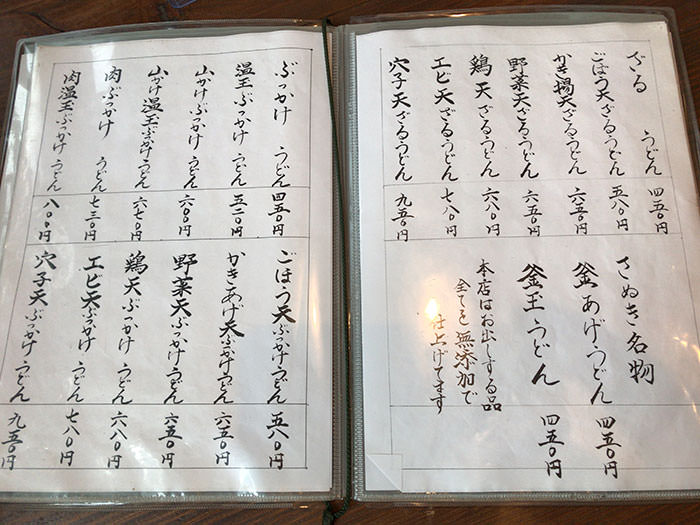 ざるうどん 四五〇円
ごぼう天ざるうどん 五八〇円
かき揚天ざるうどん 六五〇円
野菜天ざるうどん 六五〇円
鶏天ざるうどん 六八〇円
エビ天ざるうどん 七八〇円
穴子天ざるうどん 九五〇円
さぬき名物
釜あげうどん 四五〇円
釜玉うどん 五五〇円
本店はお出しする品
全てを無添加で
仕上げてます
ぶっかけうどん 四五〇円
温玉ぶっかけうどん 五二〇円
山かけぶっかけうどん 六〇〇円
山かけ温玉ぶっかけうどん 六七〇円
肉ぶっかけうどん 七三〇円
肉温玉ぶっかけうどん 八〇〇円
ごぼう天ぶっかけうどん 五八〇円
かきあげ天ぶっかけうどん 六五〇円
野菜天ぶっかけうどん 六五〇円
鶏天ぶっかけうどん 六八〇円
エビ天ぶっかけうどん 七八〇円
穴子天ぶっかけうどん 九五〇円